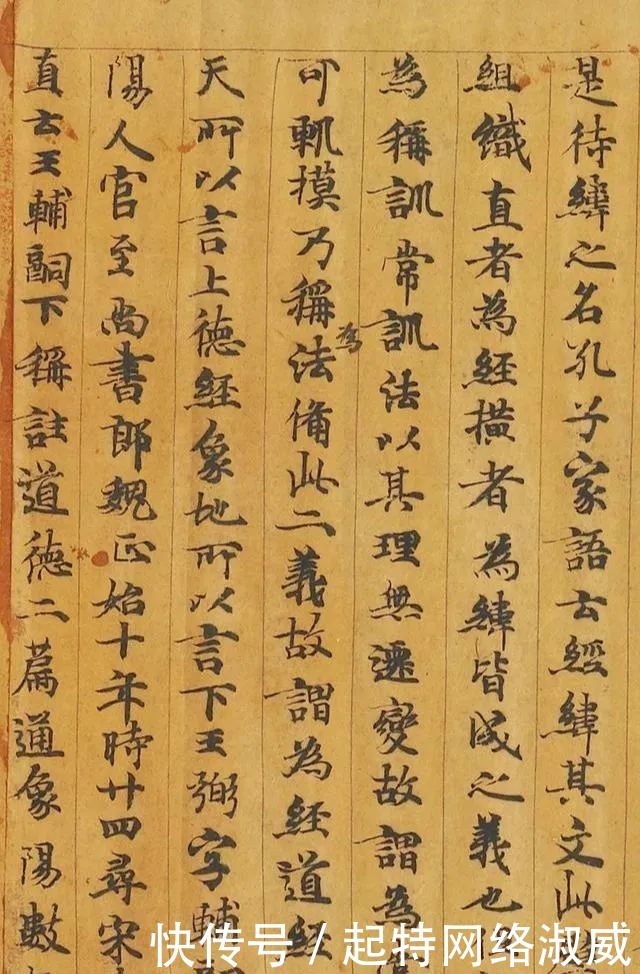 是待緯之名孔子家語云經緯其文此
組織直者為經橫者為緯皆成之義也
為稱訓常訓法以其理無遷變故謂為
可軌摸乃稱為法俻此二義故謂為經道經
天所以言上德經象地所以言下王弼字輔
陽人官至尚書郎魏正始十年時廿四尋宋
直云王輔嗣下稱註道德二篇通象陽數
快传号 / 起特网络淑威